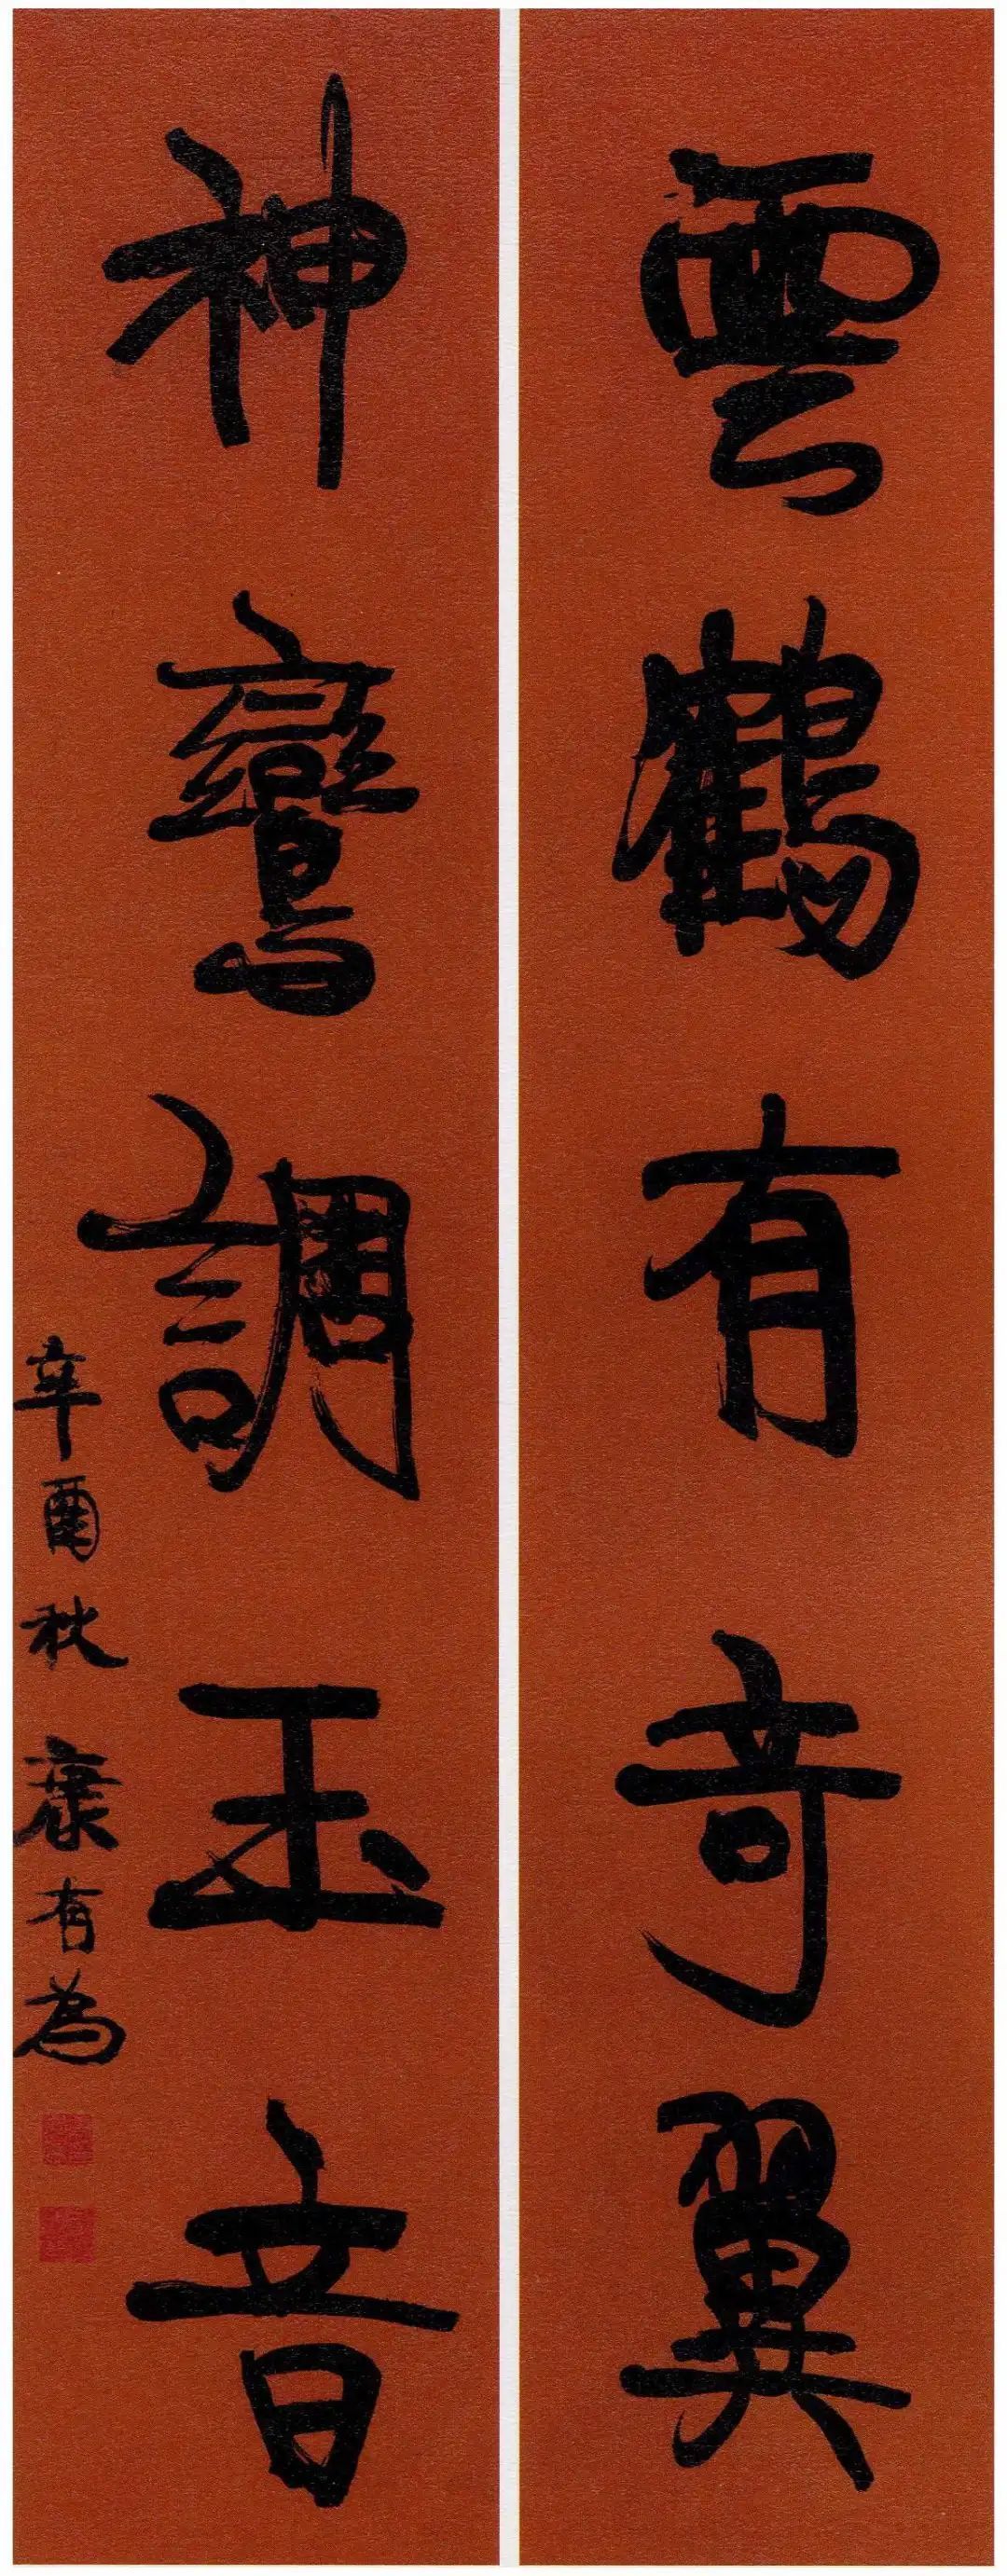 雲鶴有奇翼
神鸞調玉音
辛酉秋
康有為